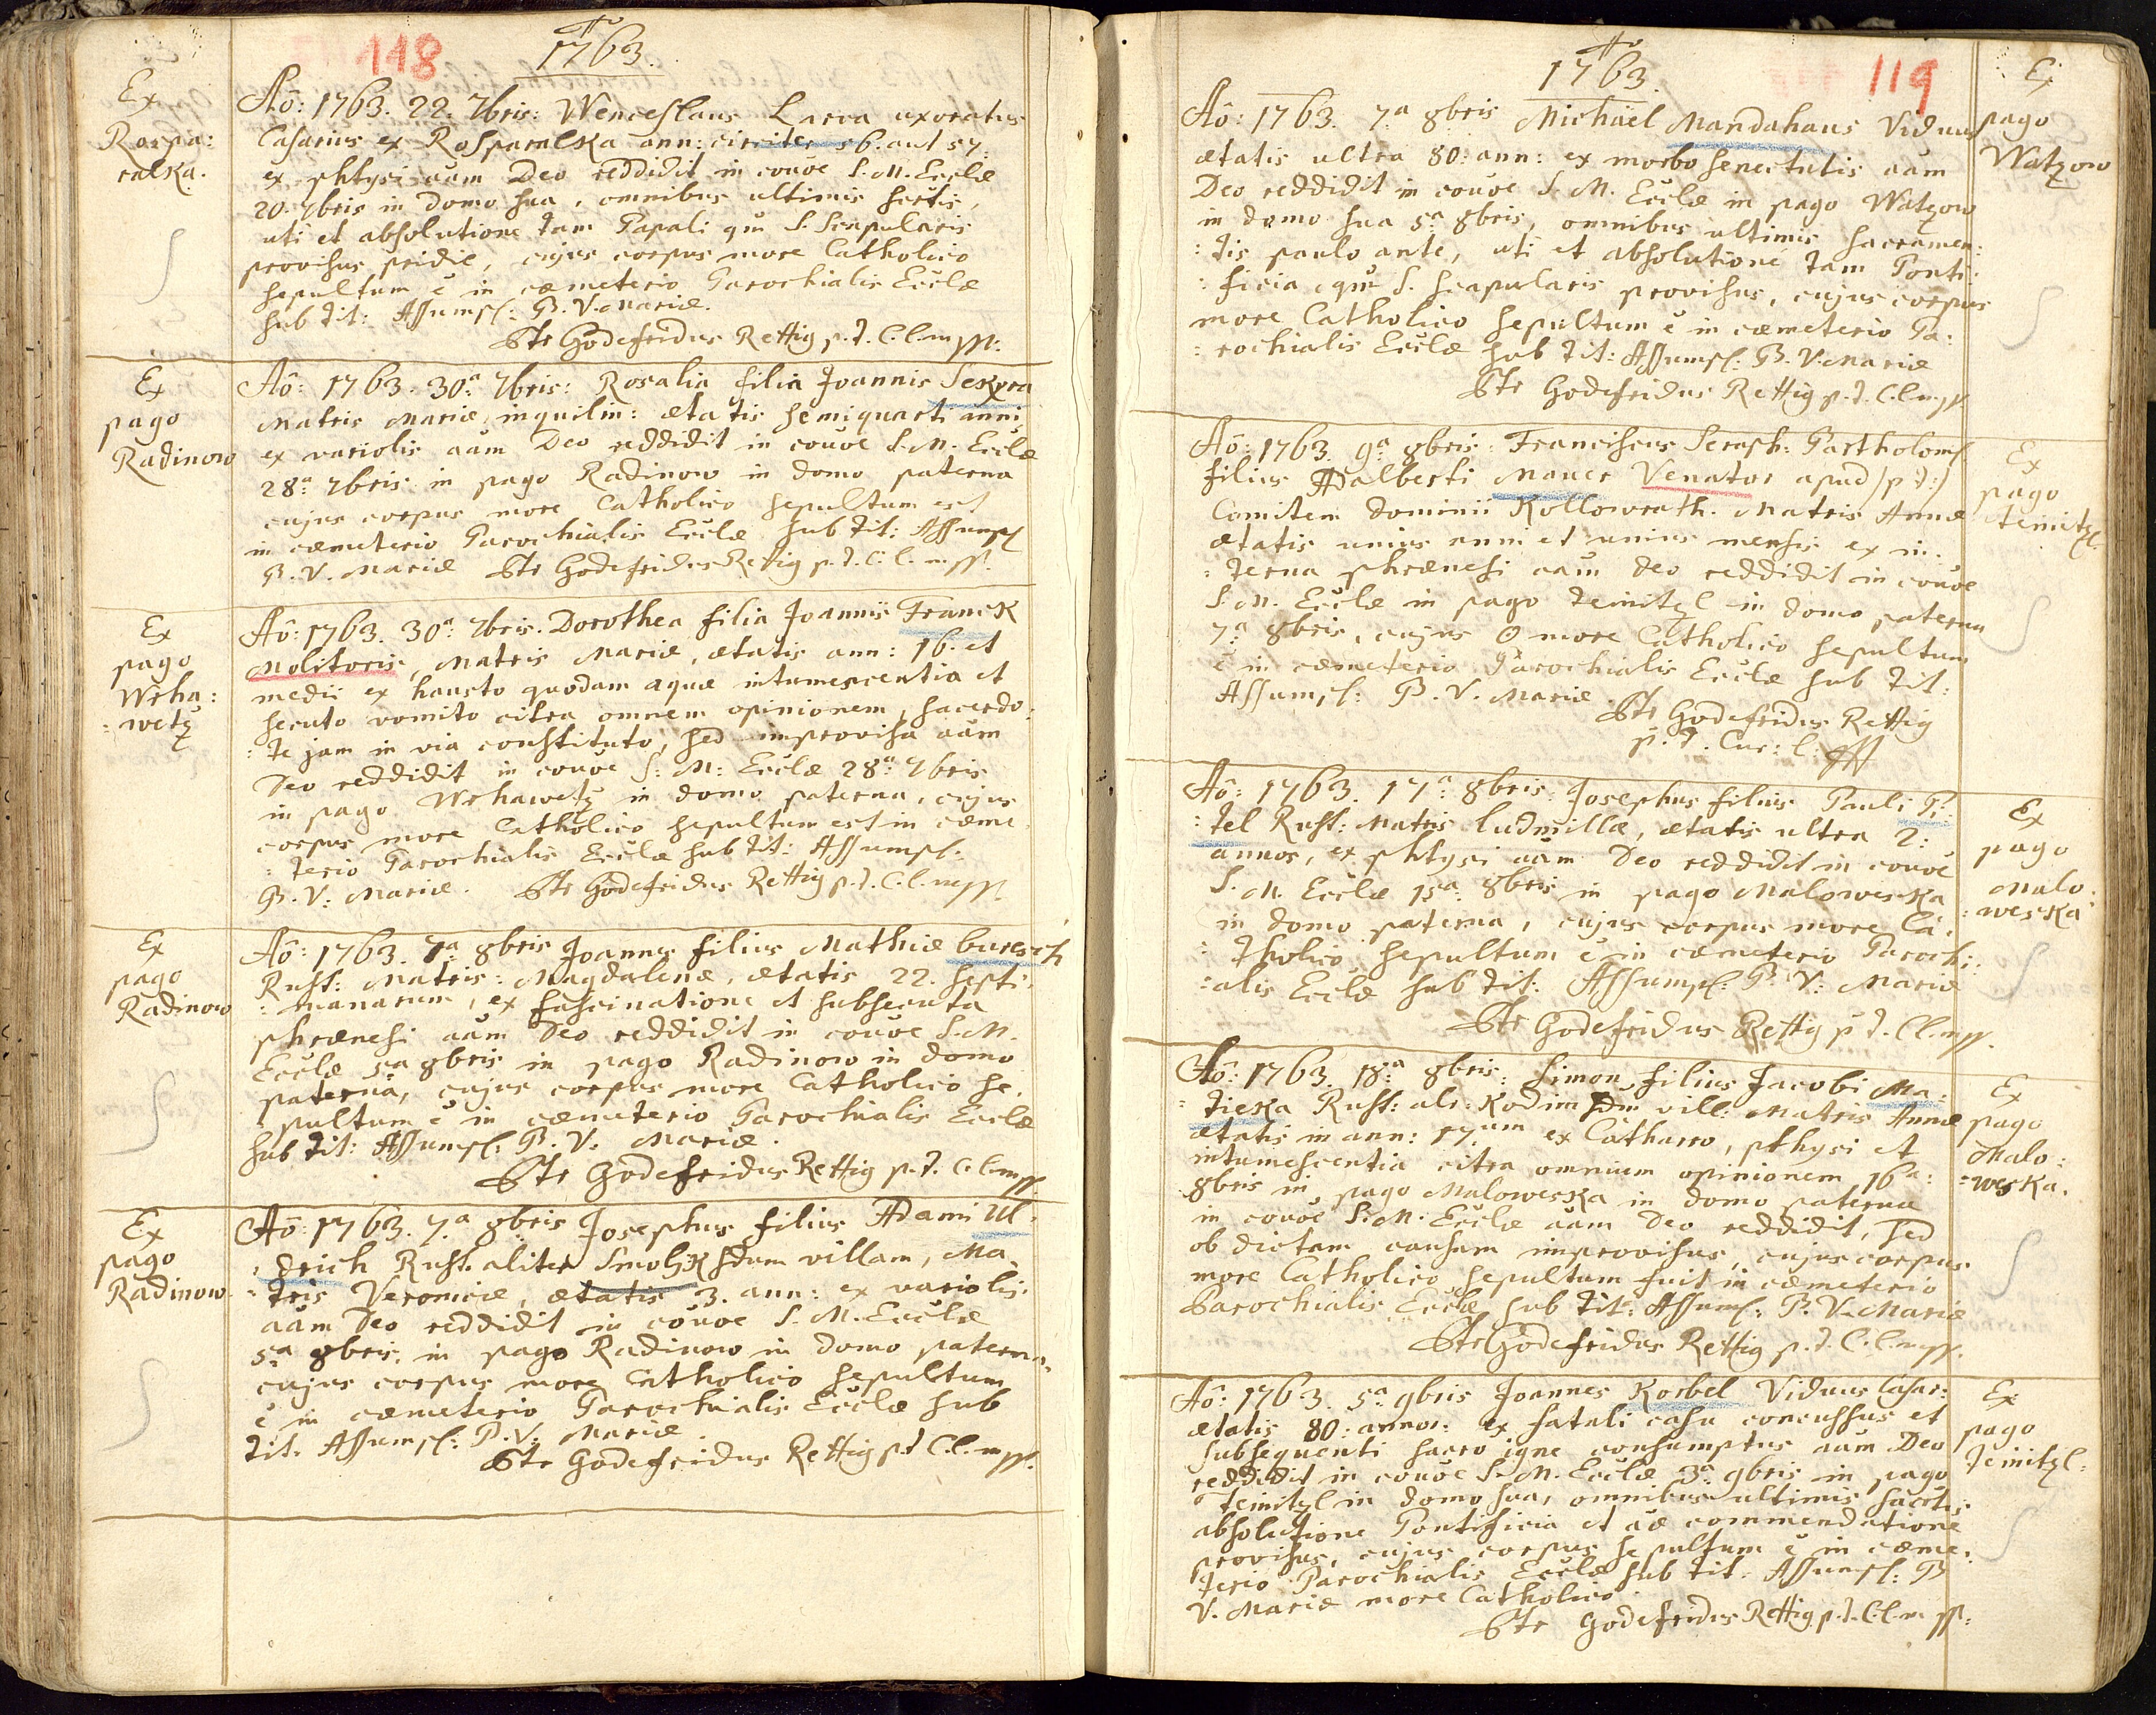 118
Aõ
1763.
Ex
Rospa:
ralka.
Aõ: 1763. 22. 7bris: Wenceslaus Larva uxoratus
Casarius ex Rosparalka ann: circiter 56. aut 57.
ex phtysi aãm Deo reddidit in couõe S. M. Ecclæ
20. 7bris in domo sua, omnibus ultimis sectis,
uti et absolutione tam Papali qũ S. Scapularis
provisus pridie, cujus corpus more Catholico
sepultum ẽ in cæmeterio Parochialis Ecclæ
sub tit: Assumpt: B. V. Mariæ.
Ptr Godefridus Rettig p. t. C. l. mpp.
Ex
pago
Radinow
Aõ: 1763. 30ª 7bris: Rosalia filia Joannis Seskyra
Matris Mariæ, inquilin: ætatis semiquarti anni
ex variolis aãm Deo reddidit in couõe S. M. Ecclæ
28ª 7bris in pago Radinow in domo paterna
cujus corpus more Catholico sepultum est
in cæmeterio Parochialis Ecclæ sub tit: Assumpt
B. V. Mariæ Ptr Godefridus Rettig p. t. C. l. mpp.
Ex
pago
Wrha:
:wetz
Aõ: 1763. 30ª: 7bris. Dorothea filia Joannis Franck
Molitoris, Matris Mariæ, ætatis ann: 16. et
medii ex haustu quodam aquæ intumescentia et
secuto vomitu citra omnem opinionem, sacerdo:
:te jam in via constituto, sed improvisa aãm
Deo reddidit in couõe S: M: Ecclæ 28ª: 7bris
in pago Wrhawetz in domo paterna, cujus
corpus more Catholico sepultum est in cæme
:terio Parochialis Ecclæ sub tit: Assumpt:
B. V: Mariæ. Ptr Godefridus Rettig p. t. C. l. mpp.
Ex
pago
Radinow
Aõ: 1763. 7ª 8bris Joannes filius Mathiæ buresch
Rust: Matris: Magdalenæ, ætatis 22. septi:
:manarum, ex fascinatione et subsecuta
phrænesi aãm Deo reddidit in couõe S. M.
Ecclæ 5ª 8bris in pago Radinow in domo
paterna, cujus corpus more Catholico se:
:pultum ẽ in cæmeterio Parochialis Ecclæ
sub tit: Assumpt: B. V. Mariæ.
Ptr Godefridus Rettig p. t. C. l. mpp.
Ex
pago
Radinow.
Aõ: 1763. 7ª 8bris Josephus filius Adami Ul:
:drich Rust. aliter Smolzk sdum villam, Ma:
:tris Veronicæ, ætatis 3. ann: ex variolis
aãm Deo reddidit in couõe S. M. Ecclæ
5ª 8bris. in pago Radinow in domo paterna
cujus corpus more Catholico sepultum
ẽ in cæmeterio Parochialis Ecclæ sub
tit. Assumpt: B. V: Mariæ.
Ptr Godefridus Rettig p. t C. l. mpp.
119
Aõ
1763.
Ex
pago
Watzow
Aõ: 1763. 7ª 8bris Michaël Mandahaus Viduus
ætatis ultra 80: ann: ex morbo senectutis aãm
Deo reddidit in couõe S. M. Ecclæ in pago Watzow
in domo sua 5ª 8bris, omnibus ultimis sacramen:
:tis paulo ante, uti et absolutione tam Ponti:
:ficia, qũ S. Scapularis provisus, cujus corpus
more Catholico sepultum ẽ in cæmeterio Pa:
:rochialis Ecclæ sub tit: Assumpt: B. V. Mariæ
Ptr Godefridus Rettig p. t. C. l. mpp.
Ex
pago
teinitzl.
Aõ: 1763. 9ª 8bris: Franciscus Seraph: Bartholom
filius Adalberti Mauer Venator apud /p t:/
Comitem dominii Kollowrath. Matris Annæ
ætatis unius anni et unius mensis ex in:
:terna phrænesi aãm Deo reddidit in couõe
S. M. Ecclæ in pago teinitzl in domo paterna
7ª 8bris, cujus O more Catholico sepultum
ẽ in cæmeterio Parochialis Ecclæ sub tit:
Assumpt: B. V. Mariæ
Ptr Godefridus Rettig
p. t. Cur: l: mpp
Ex
pago
Malo
:weska
Aõ: 1763. 17ª: 8bris: Josephus filius Pauli Pi:
:tel Rust: Matris Ludmillæ, ætatis ultra 2:
annos, ex phtysi aãm Deo reddidit in couõe
S. M. Ecclæ 15ª 8bris in pago Maloweska
in domo paterna, cujus corpus more Ca:
:tholico sepultum ẽ in cæmeterio Parochi:
:alis Ecclæ sub tit: Assumpt: B. V: Mariæ
Ptr Godefridus Rettig p t. C l. mpp.
Ex
pago
Malo:
:weska.
Aõ: 1763. 18ª: 8bris: Simon filius Jacobi Ma:
:tieska Rust: als: Kodim sdm vill: Matris Annæ
ætatis in ann: 17.um ex Catharro, phtysi et
intumescentia citra omnium opinionem 16ª:
8bris in pago Maloweska in domo paterna
in couõe S. M. Ecclæ aãm Deo reddidit, sed
ob dictam causam improvisus, cujus corpus
more Catholico sepultum fuit in cæmeterio
Parochialis Ecclæ sub tit: Assumpt: B. V. Mariæ
Ptr Godefridus Rettig p. t. C. l. mpp.
Ex
pago
teinitzl:
Aõ: 1763. 5ª: 9bris Joannes Korbel Viduus Casar:
ætatis 80: annor: ex fatali casu concussus et
subsequenti sacro igne consumptus aãm Deo
reddidit in couõe S. M. Ecclæ 3ª 9bris in pago
teinitzl in domo sua, omnibus ultimis sacrtis
absolutione Pontificia et aæ commendatione
provisus, cujus corpus sepultum ẽ in cæme:
terio Parochialis Ecclæ sub tit. Assumpt: B
V. Mariæ more Catholico
Ptr Godefridus Rettig p. t. C. l. mpp: